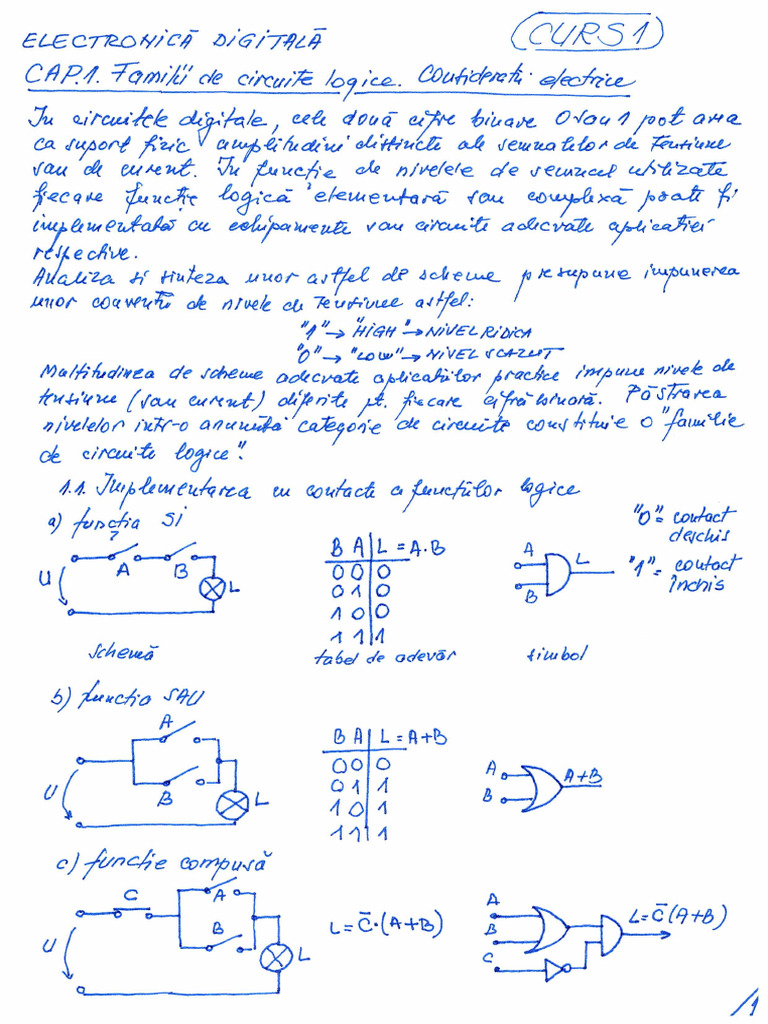 CURS 1
ELECTRONICĂ DIGITALĂ
CAP.1. Familii de circuite logice. Consideratii electrice
In circuitele digitale, cele două cifre binare 0 sau 1 pot avea
ca suport fizic amplitudini distincte ale semnalelor de tensiune
sau de curent. In functie de nivelele de semnal utilizate
fiecare functie logică elementară sau complexă poate fi
implementată cu echipamente sau circuite adecvate aplicatiei
respective.
Analiza si sinteza unor astfel de scheme presupune impunerea
unor conventii de nivele de tensiune astfel:
"1" → "HIGH" → NIVEL RIDICA
"0" → "LOW" → NIVEL SCAZUT
Multitudinea de scheme adecvate aplicatiilor practice impune nivele de
tensiune (sau curent) diferite pt. fiecare cifră binară. Păstrarea
nivelelor intr-o anumită categorie de circuite constituie o "familie
de circuite logice".
1.1. Implementarea cu contacte a functiilor logice
a) functia SI
"0" = contact
deschis
"1" = contact
închis
U A B L
B A L = A·B
0 0 0
0 1 0
1 0 0
1 1 1
A
B
L
schemă
tabel de adevăr
simbol
b) functia SAU
A
B
U
L
B A L = A+B
0 0 0
0 1 1
1 0 1
1 1 1
A
B
A+B
c) functie compusă
C
A
B
U
L
L = C̄·(A+B)
A
B
C
L = C̄(A+B)
/1